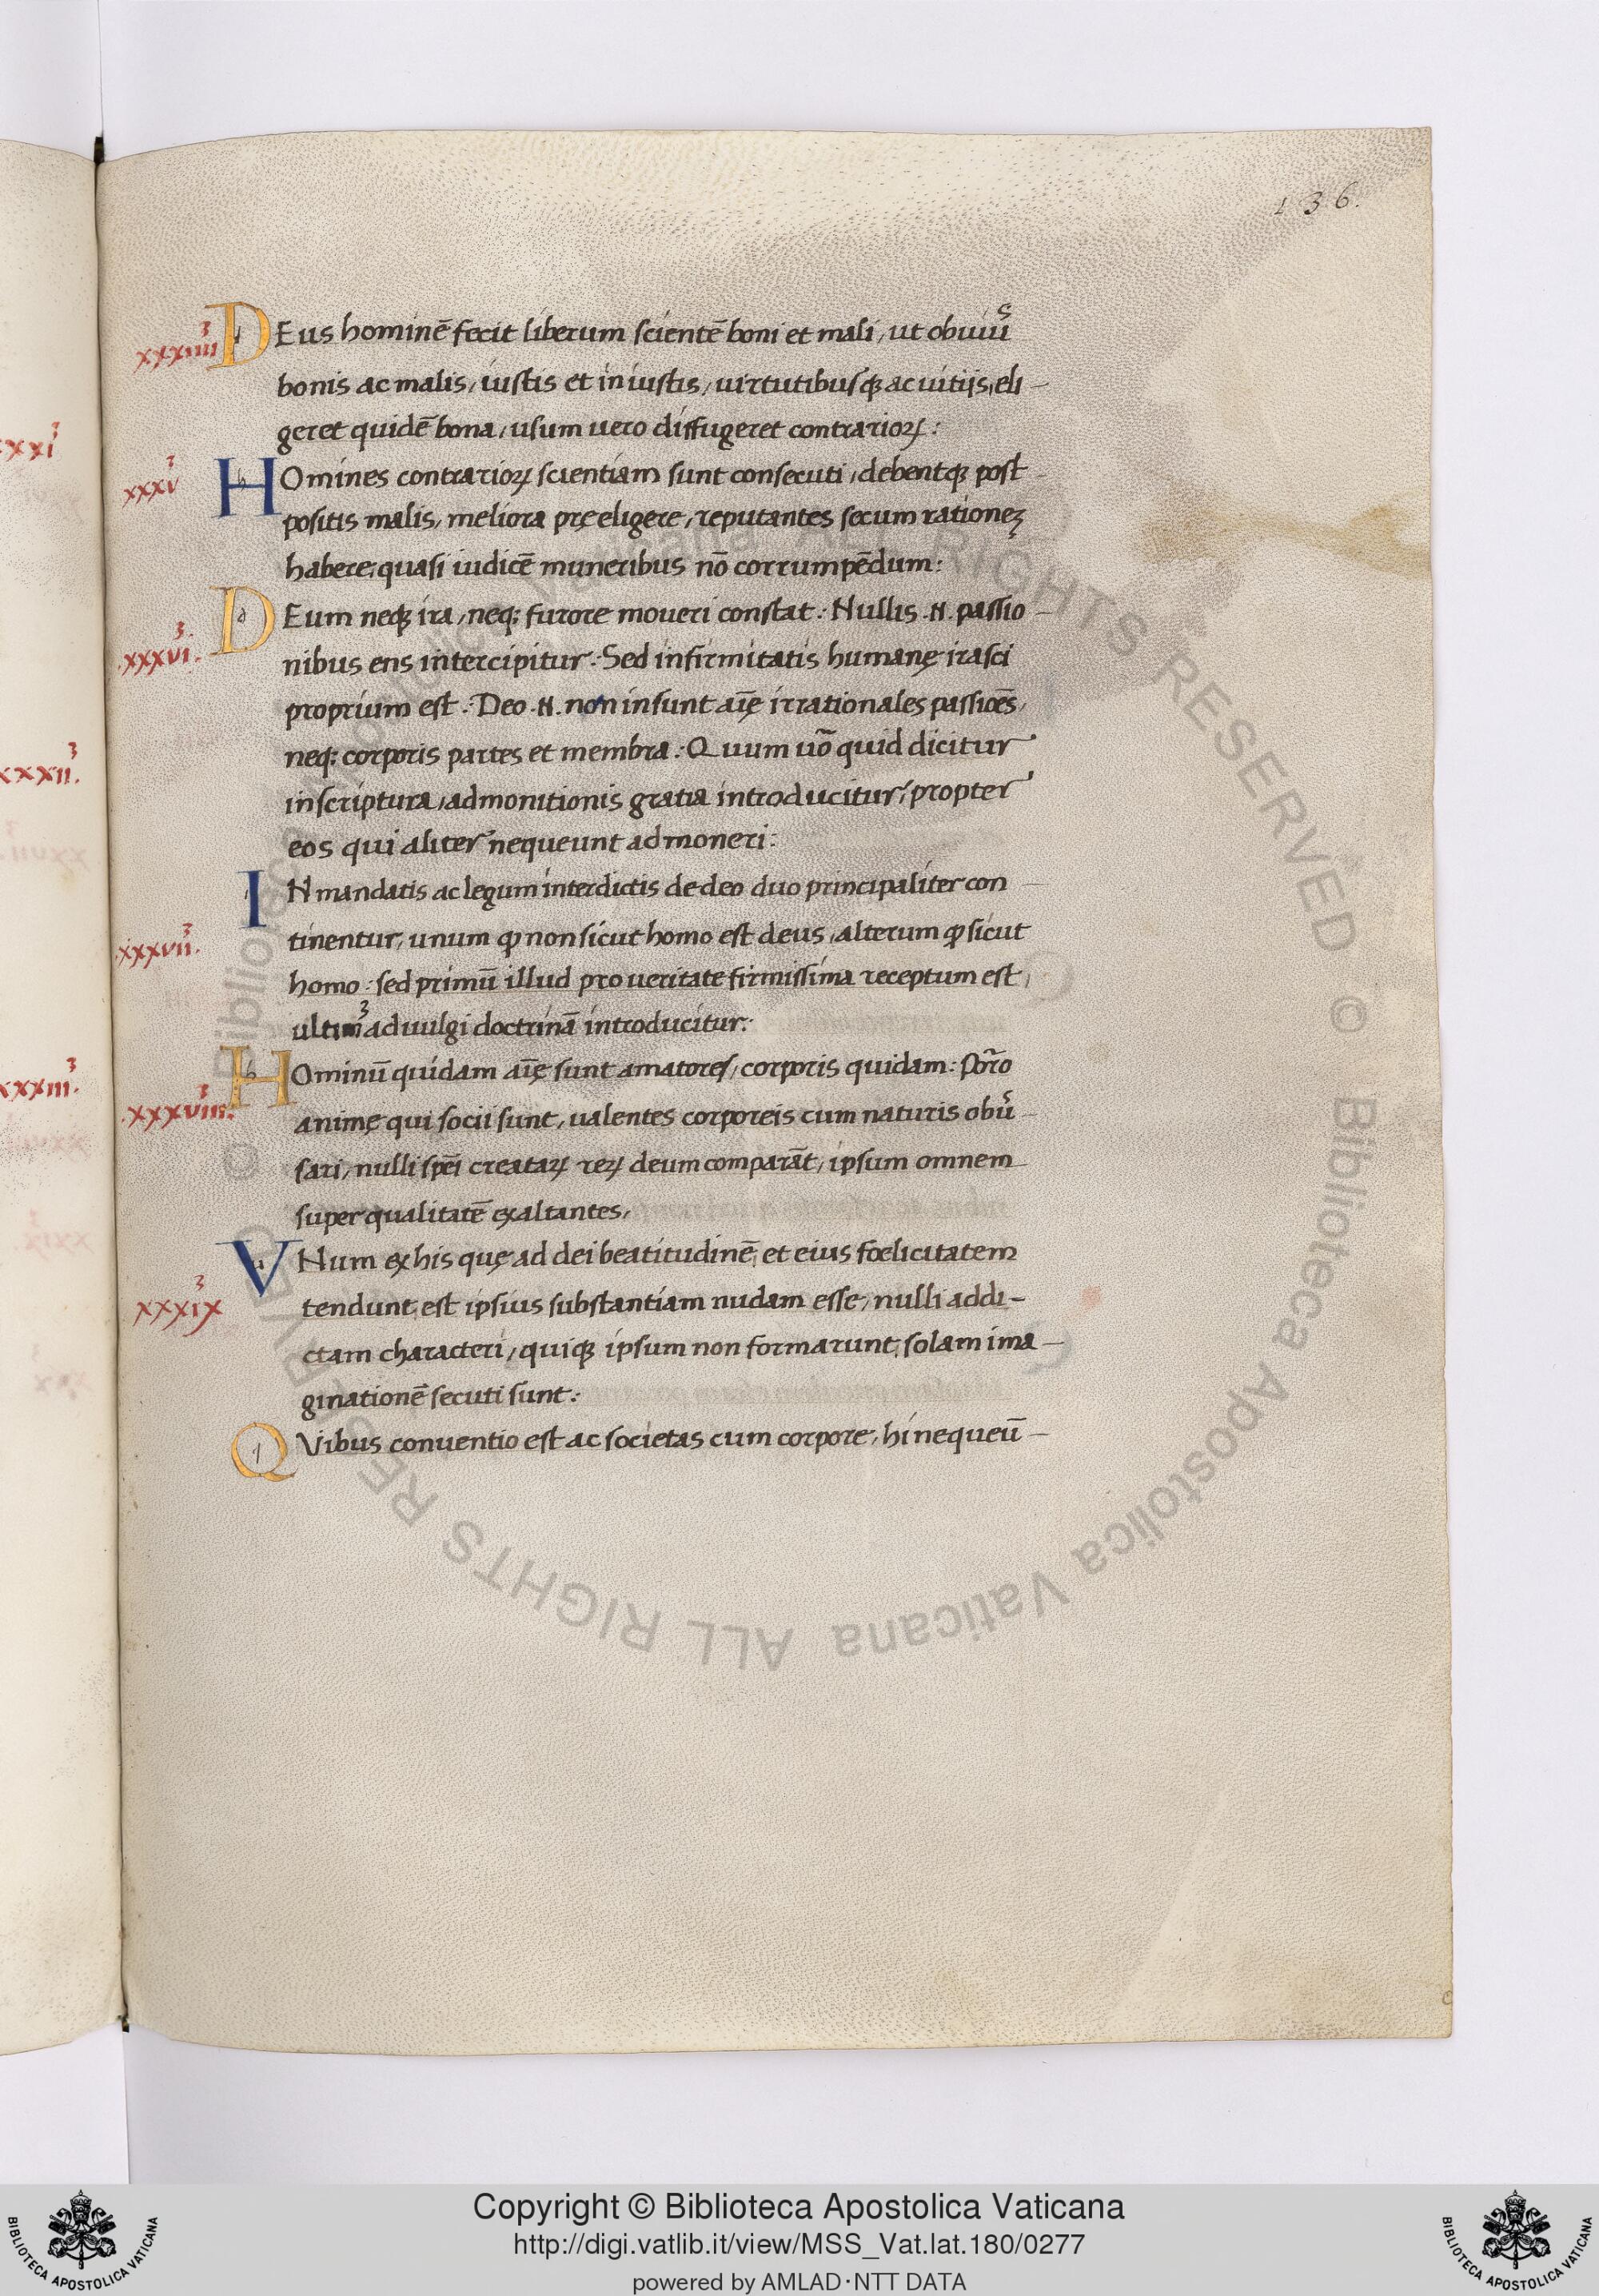 136.
xxxiiii³ DEus hominē fecit liberum scientē boni et mali, ut obuiūs
bonis ac malis, iustis et iniustis, uirtutibusqꝫ ac uitijs, eli-
geret quidē bona, usum uero diffugeret contrarioꝝ:
xxxv³ HOmines contrarioꝝ scientiam sunt consecuti, debentqꝫ post
positis malis, meliora pręeligere, reputantes secum rationeꝫ
habere, quasi iudicē muneribus nō corrumpēdum:
.xxxvi³. DEum neqꝫ ira, neq; furore moueri constat: Nullis .N. passio-
nibus ens intercipitur: Sed infirmitatis humanę irasci
proprium est: Deo .N. non insunt aīę irrationales passiōēs,
neq; corporis partes et membra: Quum uō quid dicitur
in scriptura, admonitionis gratia introducitur, propter
eos qui aliter nequeunt admoneri:
xxxvii³. IN mandatis ac legum interdictis de deo duo principaliter con-
tinentur, unum ꝙ non sicut homo est deus, alterum ꝙ sicut
homo: sed primū illud pro ueritate firmissima receptum est,
ultimꝫ ad uulgi doctrinā introducitur:
.xxxviii³. HOminū quidam aīę sunt amatores, corporis quidam: Porro
animę qui socii sunt, ualentes corporeis cum naturis obũ-
sari, nulli spēi creataꝝ reꝝ deum comparāt, ipsum omnem
super qualitatē exaltantes,
xxxix³ VNum ex his quę ad dei beatitudinē, et eius foelicitatem
tendunt, est ipsius substantiam nudam esse, nulli addi-
ctam characteri, quiqꝫ ipsum non formarunt, solam ima-
ginationē secuti sunt:
QVibus conuentio est ac societas cum corpore, hi nequeū-
xxxi³
xxxii³.
xxxiii³.
© Biblioteca Apostolica Vaticana ALL RIGHTS RESERVED
Copyright © Biblioteca Apostolica Vaticana
http://digi.vatlib.it/view/MSS_Vat.lat.180/0277
powered by AMLAD·NTT DATA
BIBLIOTECA APOSTOLICA VATICANA
BIBLIOTECA APOSTOLICA VATICANA